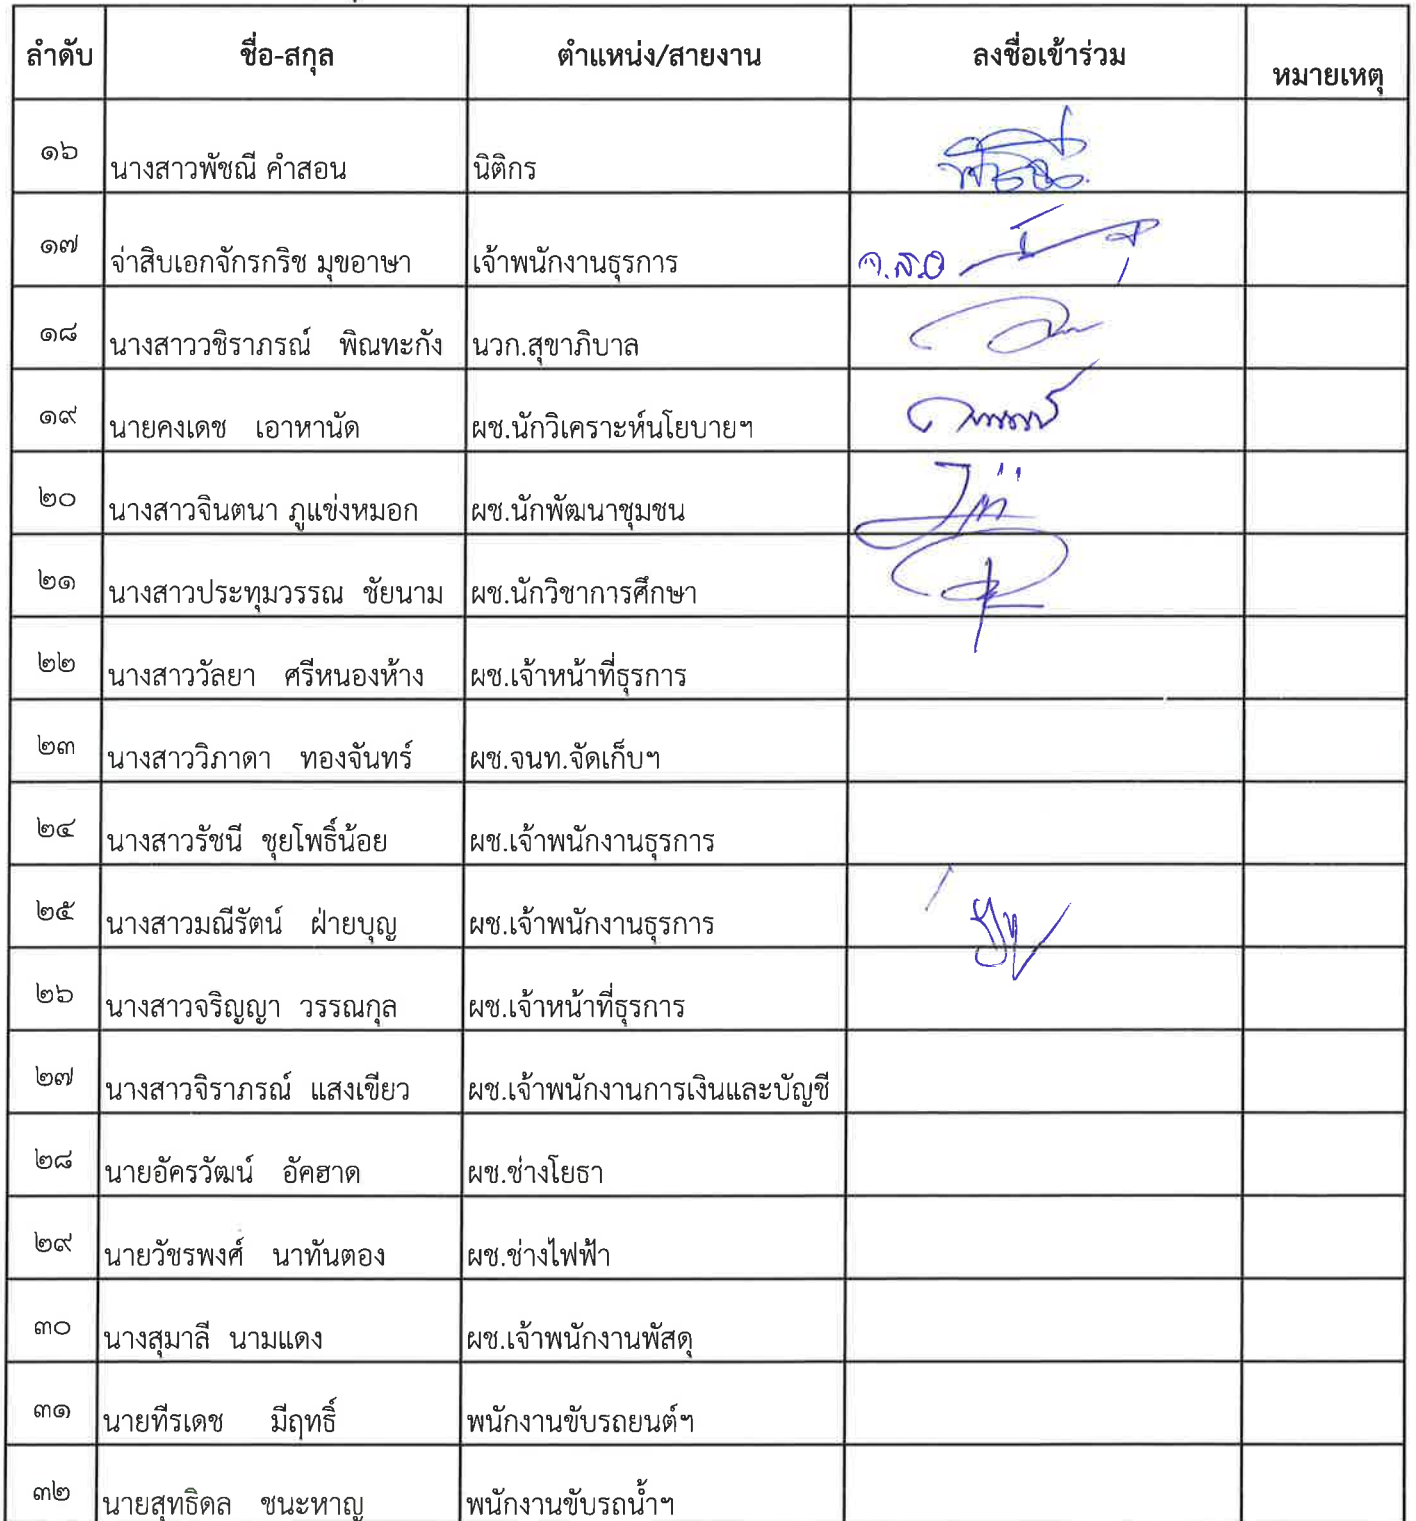 ลำดับ ชื่อ-สกุล ตำแหน่ง/สายงาน ลงชื่อเข้าร่วม หมายเหตุ
๑๖ นางสาวพัชณี คำสอน นิติกร
๑๗ จ่าสิบเอกจักรกริช มุขอาษา เจ้าพนักงานธุรการ จ.ส.อ
๑๘ นางสาววชิราภรณ์ พิณทะกัง นวก.สุขาภิบาล
๑๙ นายคงเดช เอาหานัด ผช.นักวิเคราะห์นโยบายฯ
๒๐ นางสาวจินตนา ภูแข่งหมอก ผช.นักพัฒนาชุมชน
๒๑ นางสาวประทุมวรรณ ชัยนาม ผช.นักวิชาการศึกษา
๒๒ นางสาววัลยา ศรีหนองห้าง ผช.เจ้าหน้าที่ธุรการ
๒๓ นางสาววิภาดา ทองจันทร์ ผช.จนท.จัดเก็บฯ
๒๔ นางสาวรัชนี ชุยโพธิ์น้อย ผช.เจ้าพนักงานธุรการ
๒๕ นางสาวมณีรัตน์ ฝ่ายบุญ ผช.เจ้าพนักงานธุรการ
๒๖ นางสาวจริญญา วรรณกุล ผช.เจ้าหน้าที่ธุรการ
๒๗ นางสาวจิราภรณ์ แสงเขียว ผช.เจ้าพนักงานการเงินและบัญชี
๒๘ นายอัครวัฒน์ อัคฮาด ผช.ช่างโยธา
๒๙ นายวัชรพงศ์ นาทันตอง ผช.ช่างไฟฟ้า
๓๐ นางสุมาลี นามแดง ผช.เจ้าพนักงานพัสดุ
๓๑ นายทีรเดช มีฤทธิ์ พนักงานขับรถยนต์ฯ
๓๒ นายสุทธิดล ชนะหาญ พนักงานขับรถน้ำฯ